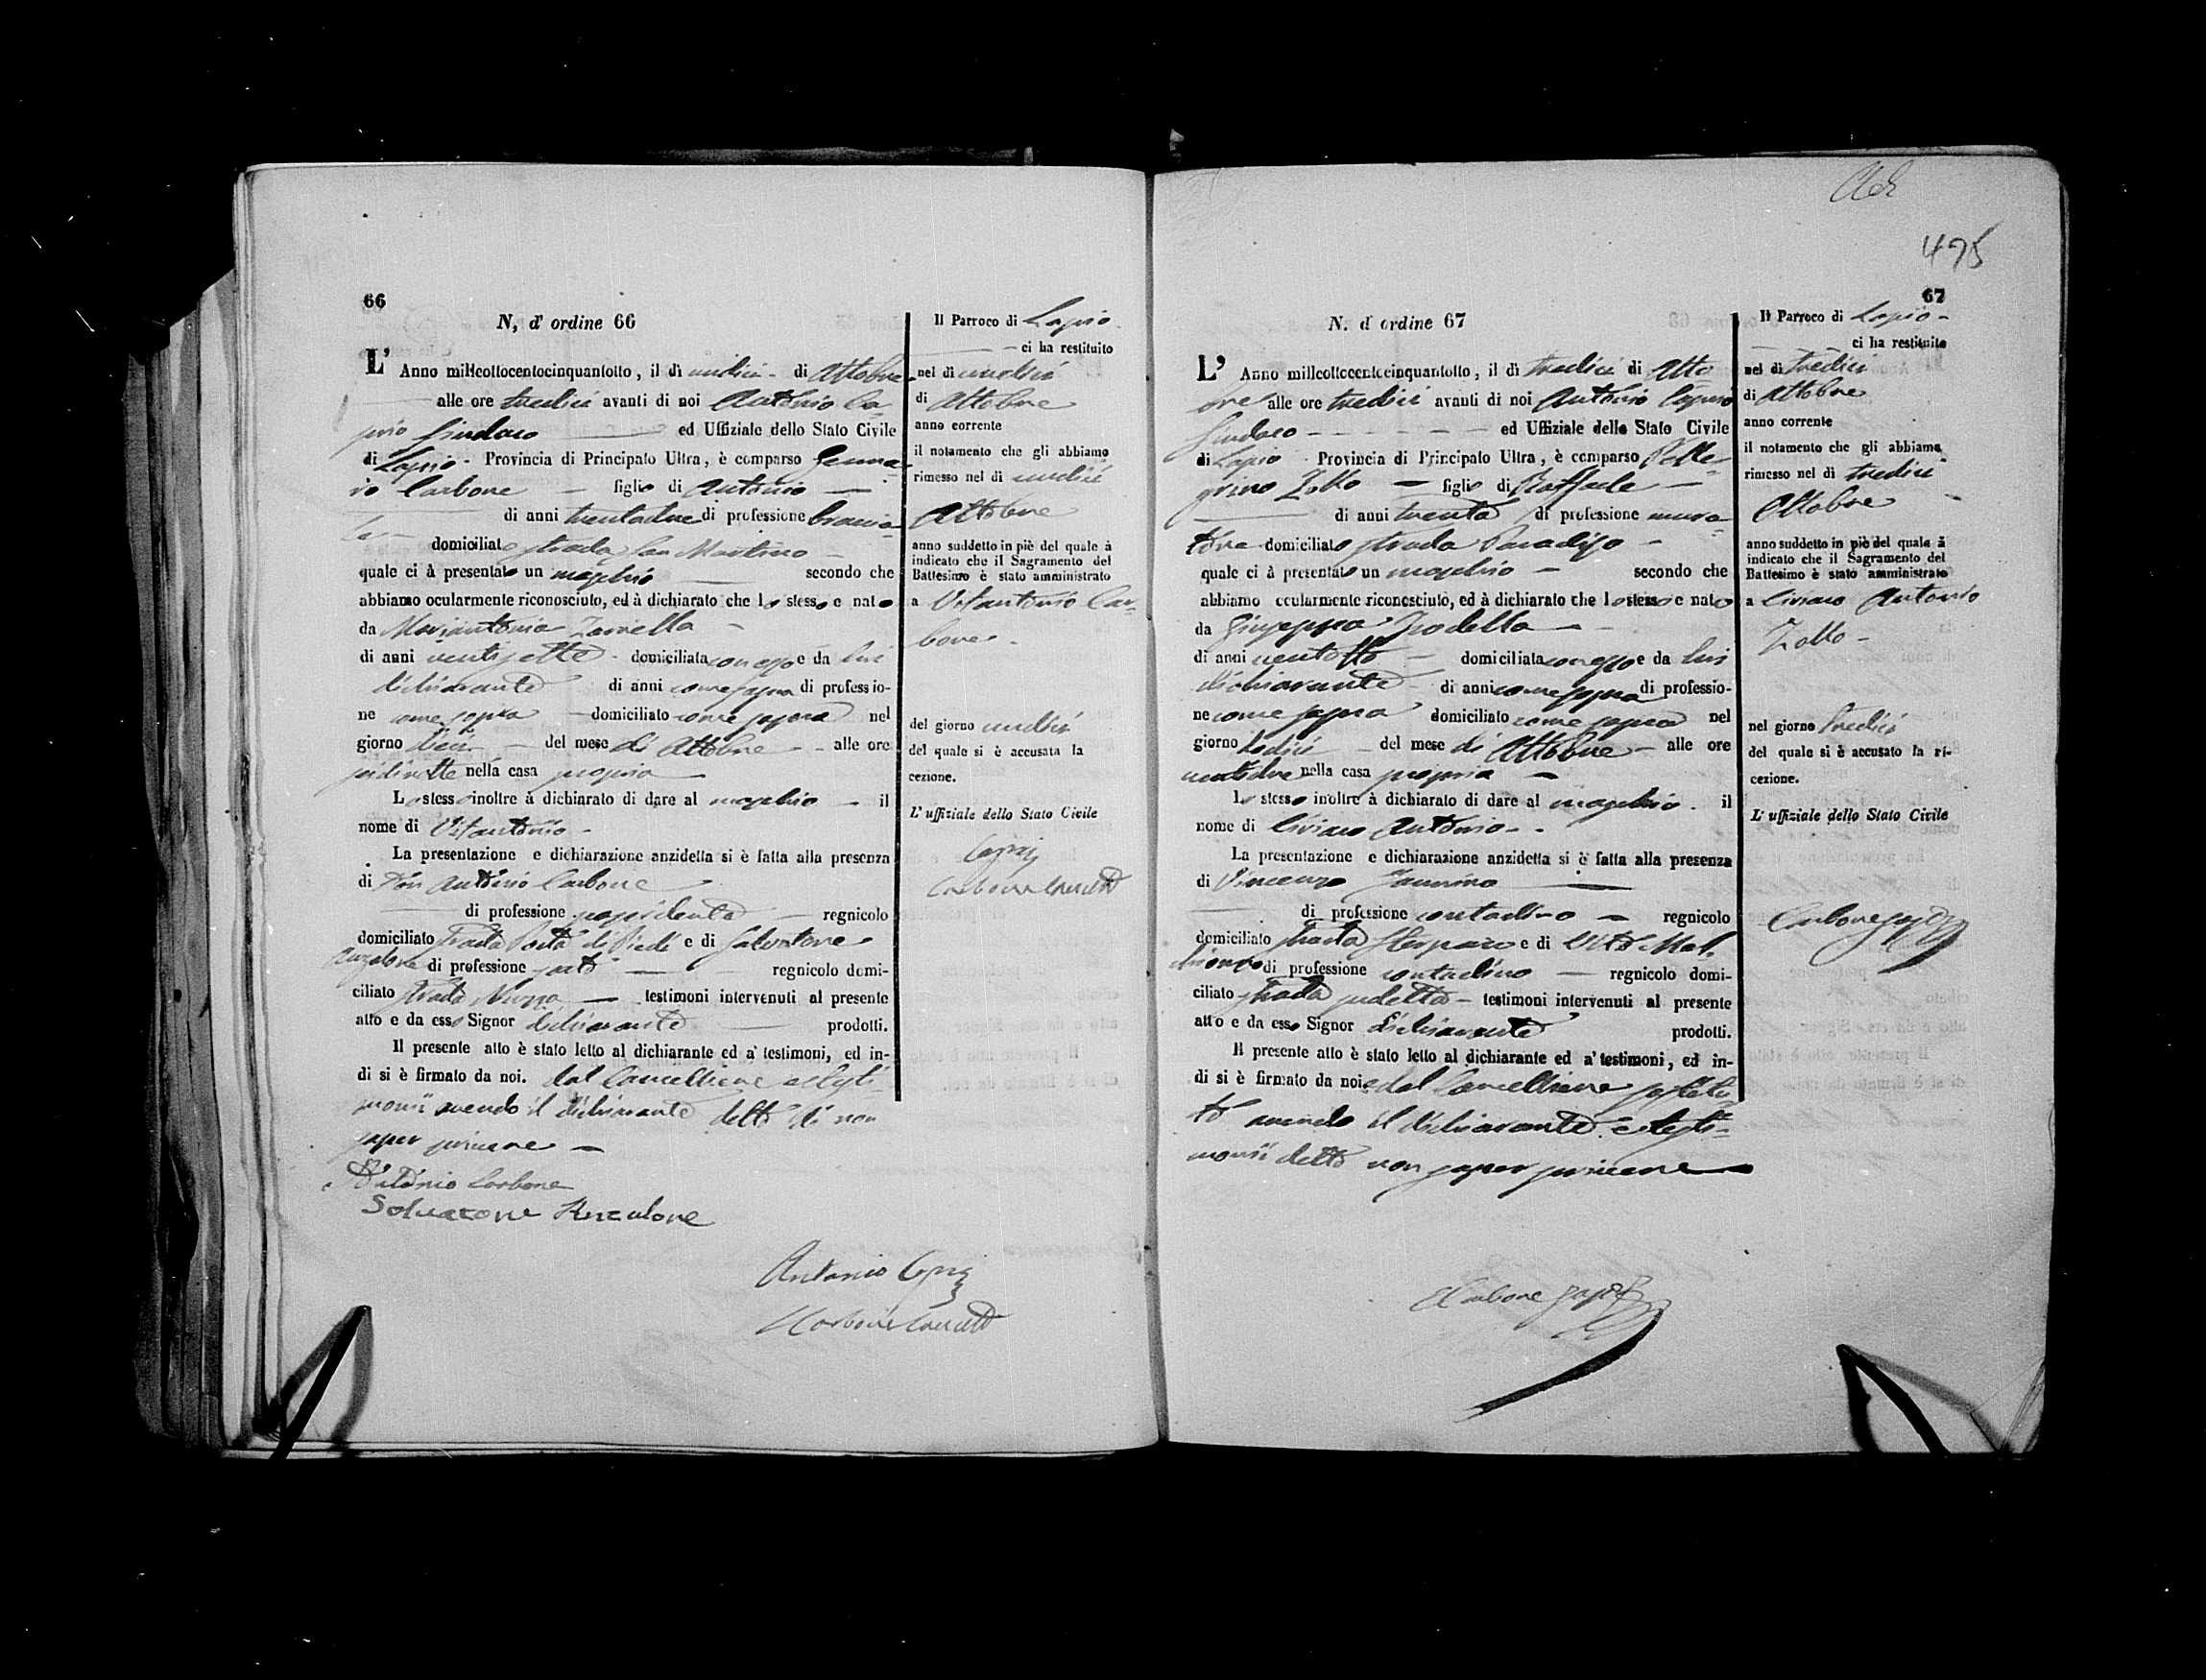 66
N, d' ordine 66
L' Anno millcottocentocinquantotto, il dì undici - di Ottobre
alle ore tredici avanti di noi Antonio Ca-
prio Sindaco ed Uffiziale dello Stato Civile
di Lapio - Provincia di Principato Ultra, è comparso Genna-
ro Carbone figlio di Antonio
di anni trentadue di professione braccia-
le domiciliato strada San Martino
quale ci à presentato un maschio secondo che
abbiamo ocularmente riconosciuto, ed à dichiarato che lo stesso e nato
da Mariantonia
di anni ventisette - domiciliata con esso e da lui
dichiarante di anni come sopra di professio-
ne come sopra domiciliato come sopra nel
giorno dieci del mese di Ottobre alle ore
sedici nella casa propria
Lo stesso inoltre à dichiarato di dare al maschio il
nome di Vitantonio
La presentazione e dichiarazione anzidetta si è fatta alla presenza
di Don Antonio Carbone
di professione possidente regnicolo
domiciliato strada Porta di Piedi e di Salvatore
Anzalone di professione sarto regnicolo domi-
ciliato strada testimoni intervenuti al presente
atto e da esso Signor dichiarante prodotti.
Il presente atto è stato letto al dichiarante ed a' testimoni, ed in-
di si è firmato da noi. dal Cancelliere e testi-
monii avendo il dichiarante detto di non
saper scrivere
Carbone
Salvatore Anzalone
Antonio Caprio
Carbone
Il Parroco di Lapio
ci ha restituito
nel dì undici
di Ottobre
anno corrente
il notamento che gli abbiamo
rimesso nel di undici
Ottobre
anno suddetto in piè del quale à
indicato che il Sagramento del
Battesimo è stato amministrato
a Vitantonio Car-
bone
del giorno undici
del quale si è accusata la
cezione.
L' uffiziale dello Stato Civile
Caprio
Carbone
495
67
N. d' ordine 67
L' Anno millcottocentocinquantotto, il dì tredici di Otto
bre alle ore tredici avanti di noi Antonio Caprio
Sindaco ed Uffiziale dello Stato Civile
di Lapio Provincia di Principato Ultra, è comparso Pelle-
grino Zollo figlio di Raffaele
di anni trenta di professione mura-
tore domiciliato strada Paradiso
quale ci à presentato un maschio secondo che
abbiamo ocularmente riconosciuto, ed à dichiarato che lo stesso e nato
da Giuseppa
di anni ventotto domiciliata con esso e da lui
dichiarante di anni come sopra di professio-
ne come sopra domiciliato come sopra nel
giorno dodici del mese di Ottobre alle ore
ventidue nella casa propria
Lo stesso inoltre à dichiarato di dare al maschio il
nome di Ciriaco Antonio
La presentazione e dichiarazione anzidetta si è fatta alla presenza
di Vincenzo
di professione contadino regnicolo
domiciliato strada e di Vito
di professione contadino regnicolo domi-
ciliato strada testimoni intervenuti al presente
atto e da esso Signor dichiarante prodotti.
Il presente atto è stato letto al dichiarante ed a' testimoni, ed in-
di si è firmato da noi e dal Cancelliere sostitu-
to avendo il dichiarante e testi-
monii detto non saper scrivere
Carbone
Il Parroco di Lapio
ci ha restituito
nel dì tredici
di Ottobre
anno corrente
il notamento che gli abbiamo
rimesso nel dì tredici
Ottobre
anno suddetto in piè del quale à
indicato che il Sagramento del
Battesimo è stato amministrato
a Ciriaco Antonio
Zollo
nel giorno tredici
del quale si è accusato la ri-
cezione.
L' uffiziale dello Stato Civile
Carbone